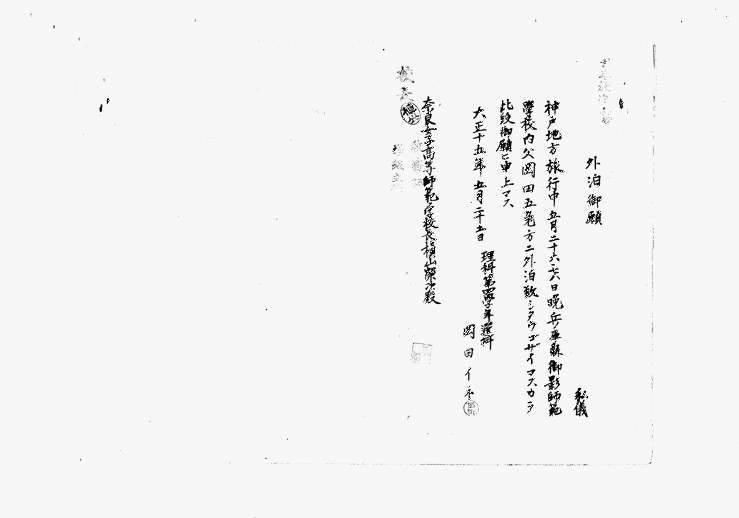 外泊御願
私儀
神戸地方旅行中五月二十六日晩兵庫縣御影師範
學校内父岡田五兎方ニ外泊致シタウゴザイマスカラ
此段御願ヒ申上マス
大正十五年五月二十五日
理科第四学年選科
岡田イネ
奈良女子高等師範学校長槇山榮次殿
校長